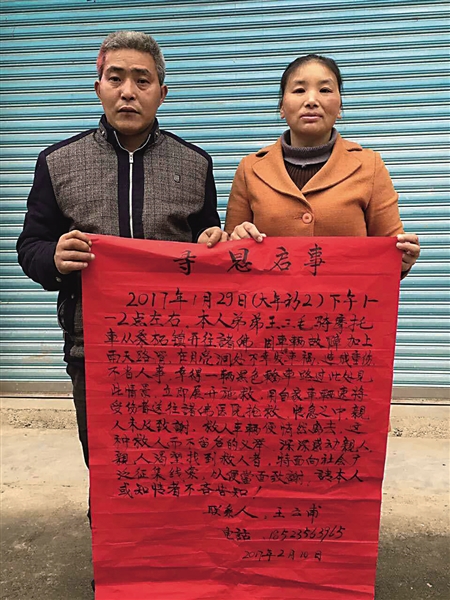 寻恩启事
2017年1月29日(大年初2)下午1-
-2点左右,本人弟弟王三毛骑摩托
车从桑柘镇开往诸佛,因车辆故障加上
雨天路滑,在月亮洞处下车发生车祸,造成重伤
不省人事,幸得一辆黑色轿车路过此处见
此情景,立即展开抢救,用自家车辆速将
受伤者送往诸佛医院抢救,情急之中亲
人未及致谢,救人车辆便悄然离去,这
种救人而不留名的义举,深深感动亲人,
亲人渴望找到救人者,特面向社会广
泛征集线索,以便当面致谢,请本人
或知情者不吝告知!
联系人:王
电话:
2017年2月10日